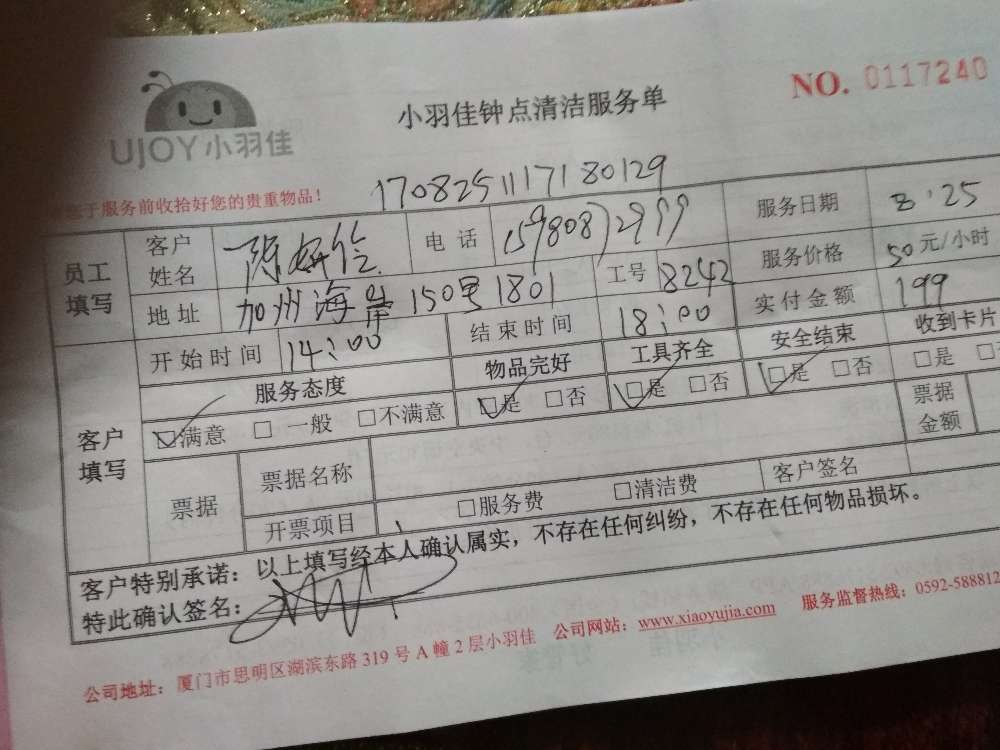 小羽佳钟点清洁服务单
NO. 0117240
UJOY 小羽佳
于服务前收拾好您的贵重物品！
1708251117180129
员工填写 客户姓名 电话 15980872999 服务日期 8'25
地址 加州海岸150号1801 工号 8242 服务价格 50元/小时
开始时间 14:00 结束时间 18:00 实付金额 199
客户填写 服务态度 物品完好 工具齐全 安全结束 收到卡片
☑满意 □一般 □不满意 ☑是 □否 ☑是 □否 ☑是 □否 □是
票据 票据名称 票据金额
开票项目 □服务费 □清洁费 客户签名
客户特别承诺：以上填写经本人确认属实，不存在任何纠纷，不存在任何物品损坏。
特此确认签名：
公司地址：厦门市思明区湖滨东路319号A幢2层小羽佳 公司网站：www.xiaoyujia.com 服务监督热线：0592-588812